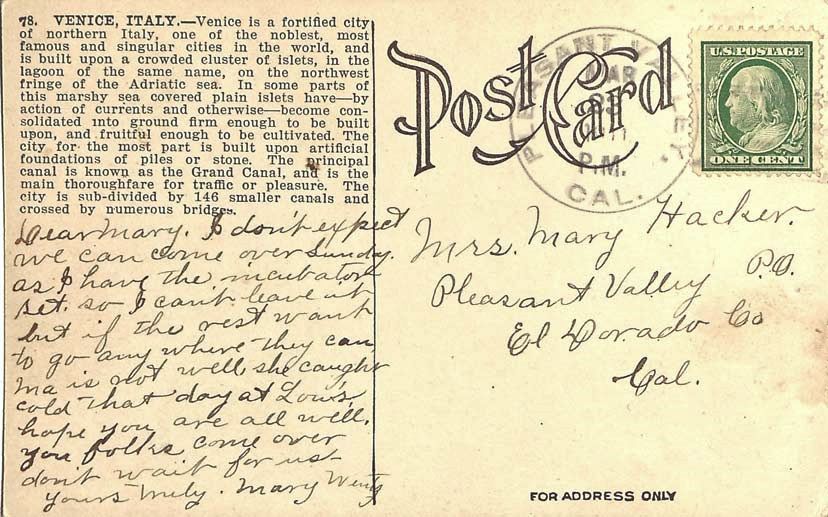 78. VENICE, ITALY.—Venice is a fortified city
of northern Italy, one of the noblest, most
famous and singular cities in the world, and
is built upon a crowded cluster of islets, in the
lagoon of the same name, on the northwest
fringe of the Adriatic sea. In some parts of
this marshy sea covered plain islets have—by
action of currents and otherwise—become con-
solidated into ground firm enough to be built
upon, and fruitful enough to be cultivated. The
city for the most part is built upon artificial
foundations of piles or stone. The principal
canal is known as the Grand Canal, and is the
main thoroughfare for traffic or pleasure. The
city is sub-divided by 146 smaller canals and
crossed by numerous bridges.
Dear Mary. I don't expect
we can come over Sunday.
as I have the incubator
set. so I can't leave it
but if the rest want
to go any where they can
Ma is not well she caught
cold that day at Lou's,
hope you are all well.
you folks come over
don't wait for us
yours truly. Mary
Post Card
PLEASANT VALLEY.
MAR
P.M.
CAL.
U.S. POSTAGE
ONE CENT
Mrs. Mary Hacker.
Pleasant Valley P.O.
El Dorado Co
Cal.
FOR ADDRESS ONLY